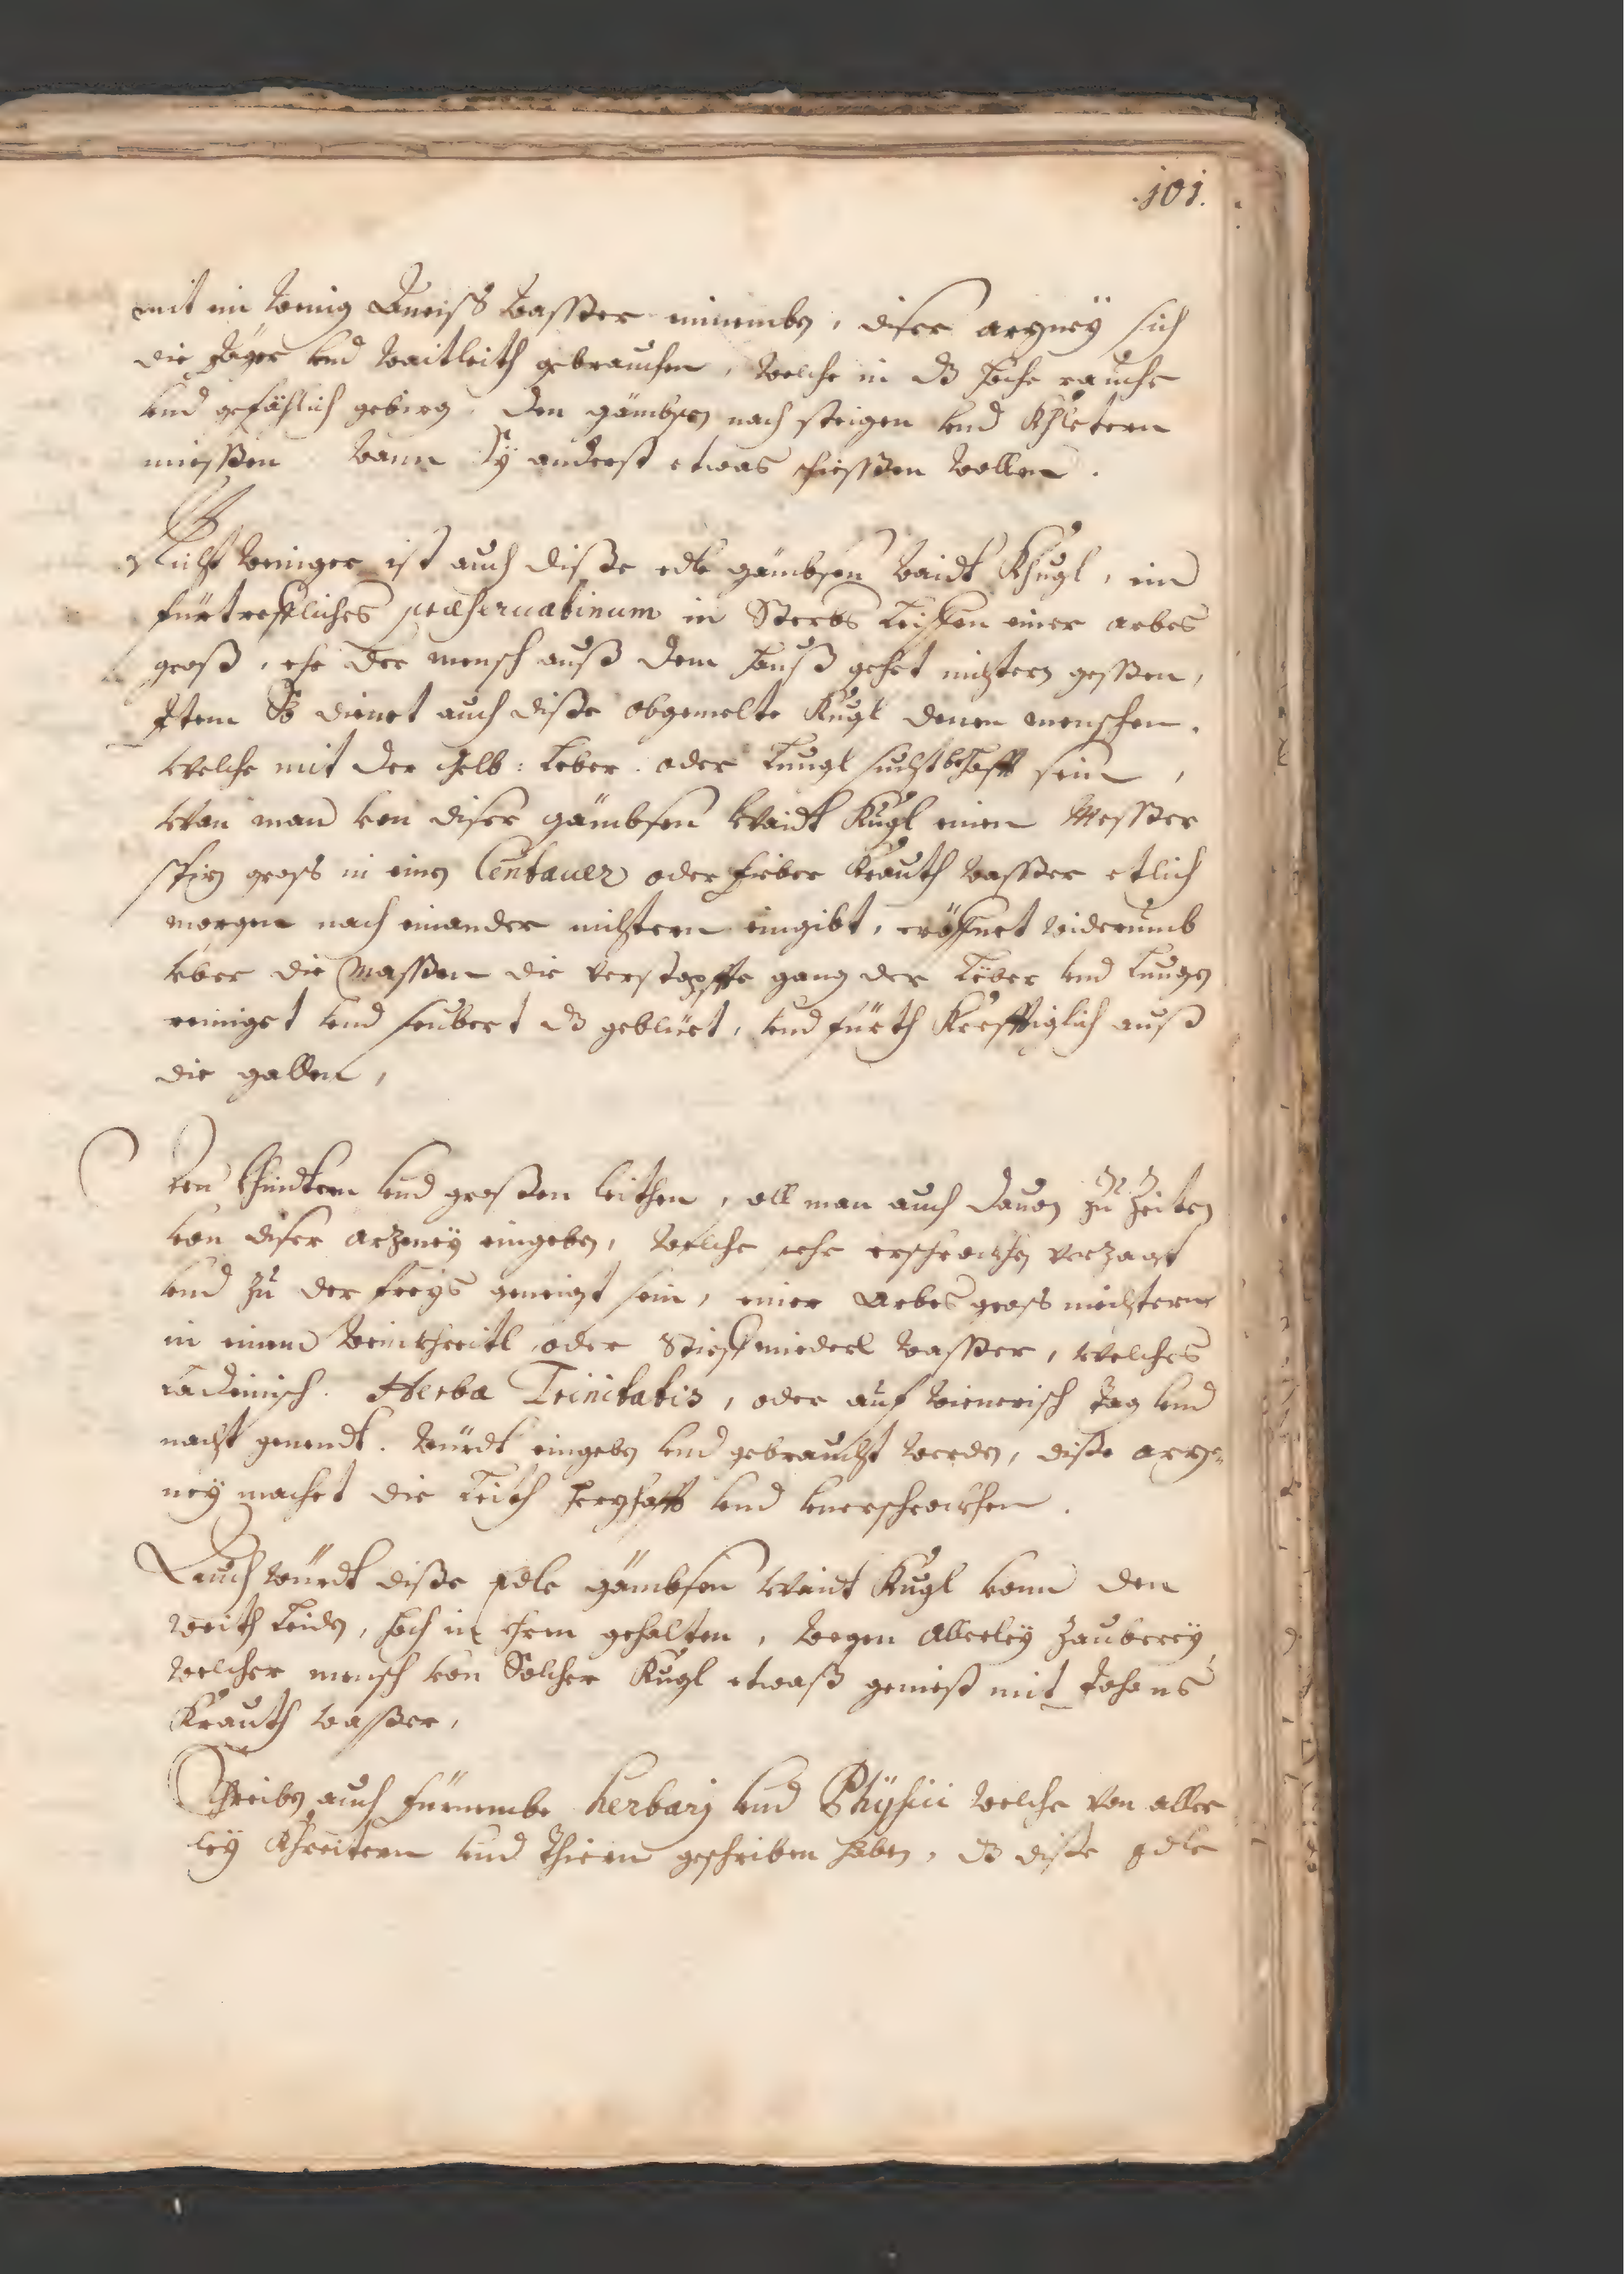 .101.
mit ein wenig wasser einnemben, diser arzney sich
die Jäger und waitleith gebrauchen, welche in dz hoche rauche
und gefählich gebirg. den gämbsen nach steigen und khletern
miessen wann sy anderst etwas schiessen wollen.
Nicht weniger ist auch disse edle gämbsen waidt khugl, ein
fürtreffliches præseruatiuum in Sterbs Leiffen einer arbes
groß, ehe der mensch auß dem hauß gehet niechtern gessen,
Item So dienet auch disse obgemelte Kugl denen menschen.
welche mit der gelb: Leber. oder Lungl sucht behafft sein,
wan man von diser gämbsen waidt Kugl einen Messer
spiz gross in einen Centauer oder fieber Krauth wasser etlich
morgen nach einander niechtern eingibt, eröffnet widerumb
über die massen die verstopffte gäng der Leber und Lungen
reiniget und seubert dz geblüet, und fürth Krefftiglich auß
die gallen,
Den khindtern und großen leithen, soll man auch dauon zu Zeiten
von diser arzney eingeben, welche sehr erschrockhen verzagt
und zu der freys geneigt sein, einer Arbes gross niechtern
in einem wein khreitl oder Stieffmiederl wasser, welches
Ladeinisch. Herba Trinitatis, oder auf wienerisch Tag und
nacht genendt. würdt eingeben und gebraucht werden, disse arz=
ney machet die Leith herzhafft und unerschrockhen.
Auch würdt disse edle gämbsen waidt Kugl vonn den
weith Leiden, hoch in ehren gehalten, wegen Allerley Zauberey,
welcher mensch von Solcher Kugl etwaß geniest mit Johans
Krauth wasser,
Schreiben auch fürnembe herbarij und Phÿsici welche von aller
ley khreitern und thiern geschriben haben, dz disse edle